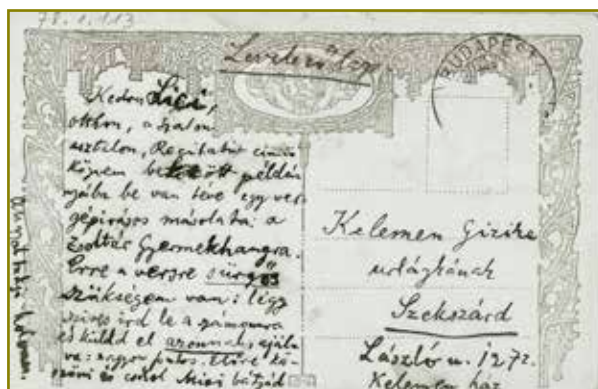 78.1.113
Levelezőlap.
BUDAPEST
Kedves Lici,
otthon, a szalon
asztalon, Recitativ című
könyvem bekötött példá-
nyába be van téve egy vers
gépirásos másolata: a
Zsoltár Gyermekhangra.
Erre a versre sürgős
szükségem van: légy
szives ird le a számomra
és küldd el azonnal, ajánl-
va: nagyon fontos. Előre kö-
szöni és csókol Misi bátyád
Kelemen Gizike
urleánynak
Szekszárd
László u. 1272.
Kelemen ház